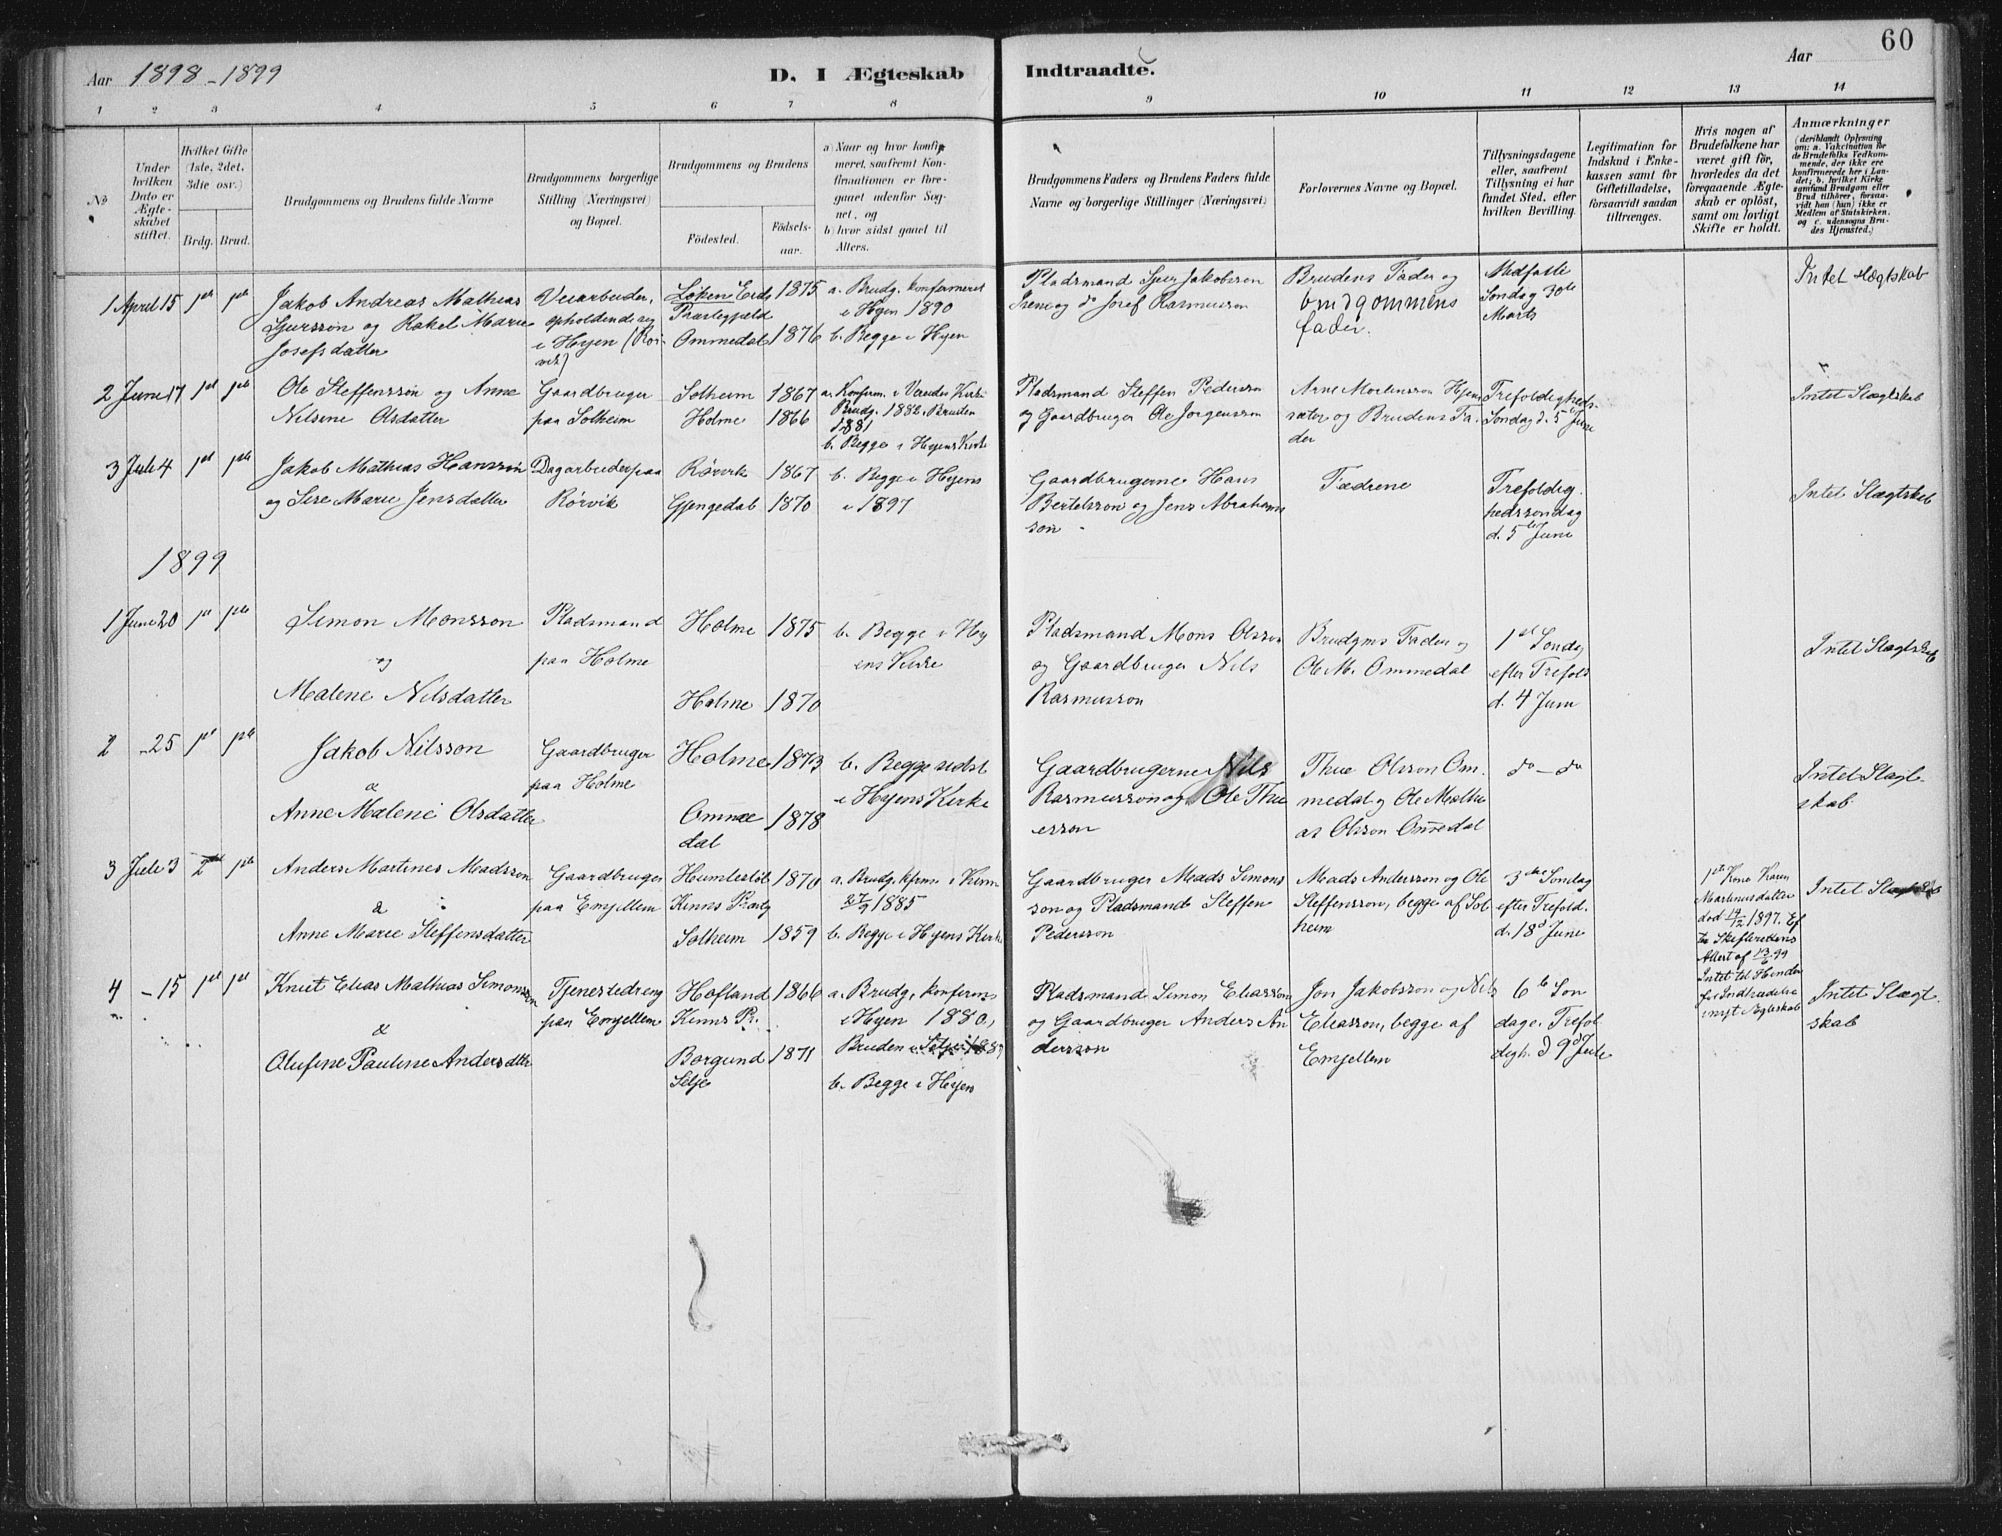 60
Aar 1898-1899
D. I Ægteskab Indtraadte.
Aar
1 2 3 4 5 6 7 8 9 10 11 12 13 14
№
Under hvilken Dato er Ægteskabet stiftet.
Hvilket Gifte (1ste, 2det, 3die osv.)
Brdg. Brud.
Brudgommens og Brudens fulde Navne
Brudgommens borgerlige Stilling (Næringsvei) og Bopæl.
Brudgommens og Brudens
Fødested.
Fødselsaar.
a) Naar og hvor konfirmeret, saafremt Konfirmationen er foregaaet udenfor Sognet, og
b) hvor sidst gaaet til Alters.
Brudgommens Faders og Brudens Faders fulde Navne og borgerlige Stillinger (Næringsvei)
Forlovernes Navne og Bopæl.
Tillysningsdagene eller, saafremt Tillysning ei har fundet Sted, efter hvilken Bevilling.
Legitimation for Indskud i Enkekassen samt for Giftetilladelse, forsaavidt saadan tiltrænges.
Hvis nogen af Brudefolkene har været gift før, hvorledes da det foregaaende Ægteskab er opløst, samt om lovligt Skifte er holdt.
Anmærkninger (deriblandt Oplysning om: a. Vakcination for de Brudefolks Vedkommende, der ikke ere konfirmerede her i Landet; b. hvilket Kirkesamfund Brudgom eller Brud tilhører, forsaavidt han (hun) ikke er Medlem af Statskirken, og c. udensogns Brudes Hjemsted.)
1 April 15 1ste 1ste
Jakob Andreas Mathias
Sjursson og Rakel Marie
Josefsdatter
Veiarbeider,
opholdende sig
i Hyen (Rørvik)
Løken Eids
Præstegjeld
1875
Ommedal 1876
a. Brudg. konfirmeret
i Hyen 1890
b. Begge i Hyen
Pladsmand Sjur Jakobsson
og do Josef Rasmusson
Brudens Fader og
brudgommens
fader.
Søndag 30te
Marts
Intet Slægtskab
2 June 17 1ste 1ste
Ole Steffensson og Anne
Nilsine Olsdatter
Gaardbruger
paa Solheim
Solheim 1867
Holme 1866
a. Konfirm. i Kirke
Brudg. 1882, Bruden
1881
b. Begge i Hyens Kirke
Pladsmand Steffen Pedersson
og Gaardbruger Ole Jørgensson
Arne Mortensson Hjem
sæter og Brudens Fa-
der
Trefoldigheds-
søndag d. 5te June
Intet Slægtskab
3 Jule 4 1ste 1ste
Jakob Mathias Hansson
og Sise Marie Jensdatter
Dagarbeider paa
Rørvik
Rørvik 1867
Gjengedal 1870
b. Begge i Hyens
i 1897
Gaardbrugerne Hans
Bertelsson og Jens Abrahams
son
Fædrene
Trefoldig
hedssøndag
d. 5te June
Intet Slægtskab
1899
1 June 20 1ste 1ste
Simon Monsson
og
Malene Nilsdatter
Pladsmand
paa Holme
Holme 1875
Holme 1870
b. Begge i Hy
ens Kirke
Pladsmand Mons Olsson
og Gaardbruger Nils
Rasmusson
Brudgms Fader og
Ole M. Ommedal
1ste Søndag
efter Trefold
d. 4 Juni
Intet Slægtskab
2 - 25 1ste 1ste
Jakob Nilsson
&
Anne Malene Olsdatter
Gaardbruger
paa Holme
Holme 1873
Omme
dal
1878
b. Begge sidst
i Hyens Kirke
Gaardbrugerne Nils
Rasmusson og Ole Thu
esson
Thue Olsson Om.
medal og Ole Mathi
as Olsson Omedal
do - do
Intet Slægt-
skab
3 Jule 3 2det 1ste
Anders Martines Madsson
&
Anne Marie Steffensdatter
Gaardbruger
paa Emjellem
Humlestøl
Kinns Præstg
1870
Solheim 1859
a. Brudg. kfirm. i Kinn
27/9 1885
b. Begge i Hyens Kirke
Gaardbruger Mads Simons
son og Pladsmand Steffen
Pedersson
Mads Andersson og Ole
Steffensson, begge af Sol
heim
3die Søndag
efter Trefold.
d. 18d June
1ste Kone Karen
Martinusdatter
død 14/12 1897. Ef
ter Skifterettens
Attest af 13/6 99
Intet til Hinder
for Indtrædelse
i nyt Ægteskab
Intet Slægtskab
4 - 15 1ste 1ste
Knut Elias Mathias Simonsson
&
Olufine Pauline Andersdtter
Tjenestedreng
paa Emjellem
Hofland
Kinns Pr.
1866
Borgund
Selje
1871
a. Brudg. konfirm.
i Hyen 1880,
Bruden i Selje
b. Begge i Hyen
Pladsmand Simon Eliasson
og Gaardbruger Anders An
dersson
Jon Jakobsson og Nils
Eliasson, begge af
Emjellem
6te Søn
dage. Trefol
digh. d 9d Jule
Intet Slægt.
skab